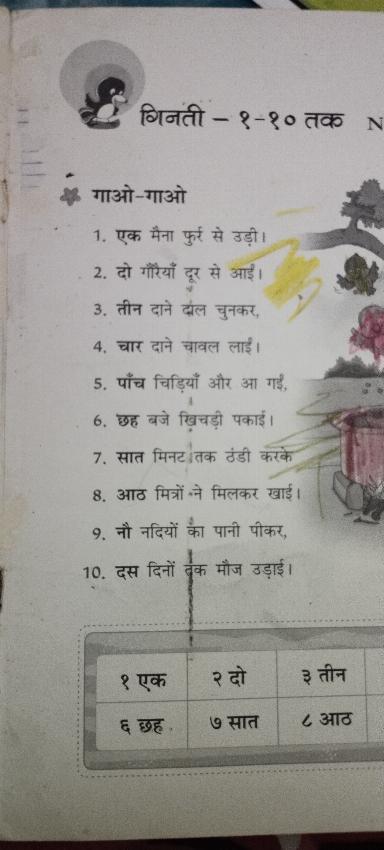 गिनती – १-१० तक N
गाओ-गाओ
1. एक मैना फुर्र से उड़ी।
2. दो गौरैयाँ दूर से आईं।
3. तीन दाने दाल चुनकर,
4. चार दाने चावल लाईं।
5. पाँच चिड़ियाँ और आ गईं,
6. छह बजे खिचड़ी पकाई।
7. सात मिनट तक ठंडी करके
8. आठ मित्रों ने मिलकर खाई।
9. नौ नदियों का पानी पीकर,
10. दस दिनों तक मौज उड़ाई।
१ एक २ दो ३ तीन
६ छह ७ सात ८ आठ